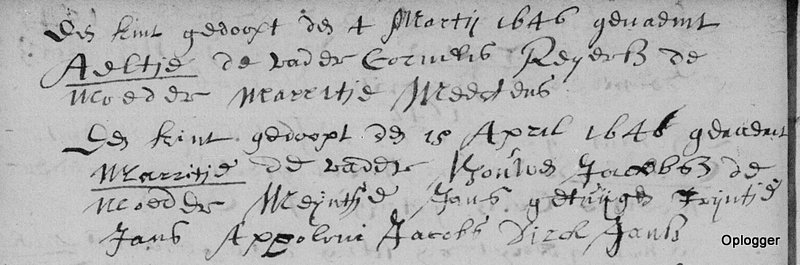 Een kint gedoopt den 4 Martij 1646 genaemt
Aeltje de vader Cornelis Reyersz de
moeder Marritje Meertens
Een kint gedoopt den 15 April 1646 genaemt
Marritje de vader Jacobsz de
moeder Meynsje Jans getuijgen Trijntje
Jans Appoloni Jacobs Dirck Jansz
Oplogger